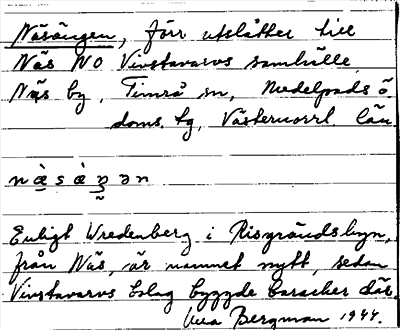 Näsängen, förr utslåtter till
Näs NO Vivstavarvs samhälle,
Näs by, Timrå sn, Medelpads ö.
doms. tg, Västernorrl. län.
n ä̀ s ä̀ ŋ ə n
Enligt Wredenberg i Risgrändsbyn,
från Näs, är namnet nytt, sedan
Vivstavarvs bolag byggde baracker där.
Bergman 1944.